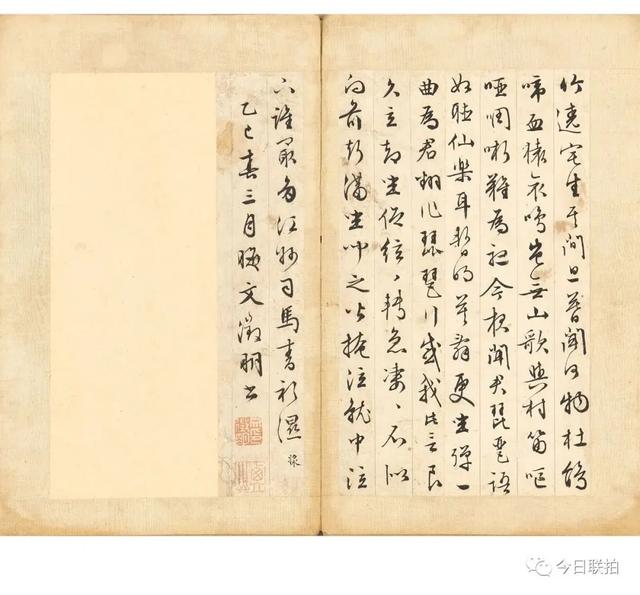 竹遶宅生其間旦暮聞何物杜鵑
啼血猿哀鳴豈無山歌與村笛嘔
啞啁哳難為聽今夜聞君琵琶語
如聽仙樂耳暫明莫辭更坐彈一
曲為君翻作琵琶行感我此言良
久立却坐促絃〻轉急凄〻不似
向前聲滿坐聞之皆掩泣就中泣
下誰最多江州司馬青衫濕
乙巳春三月晦文徵明書
今日联拍